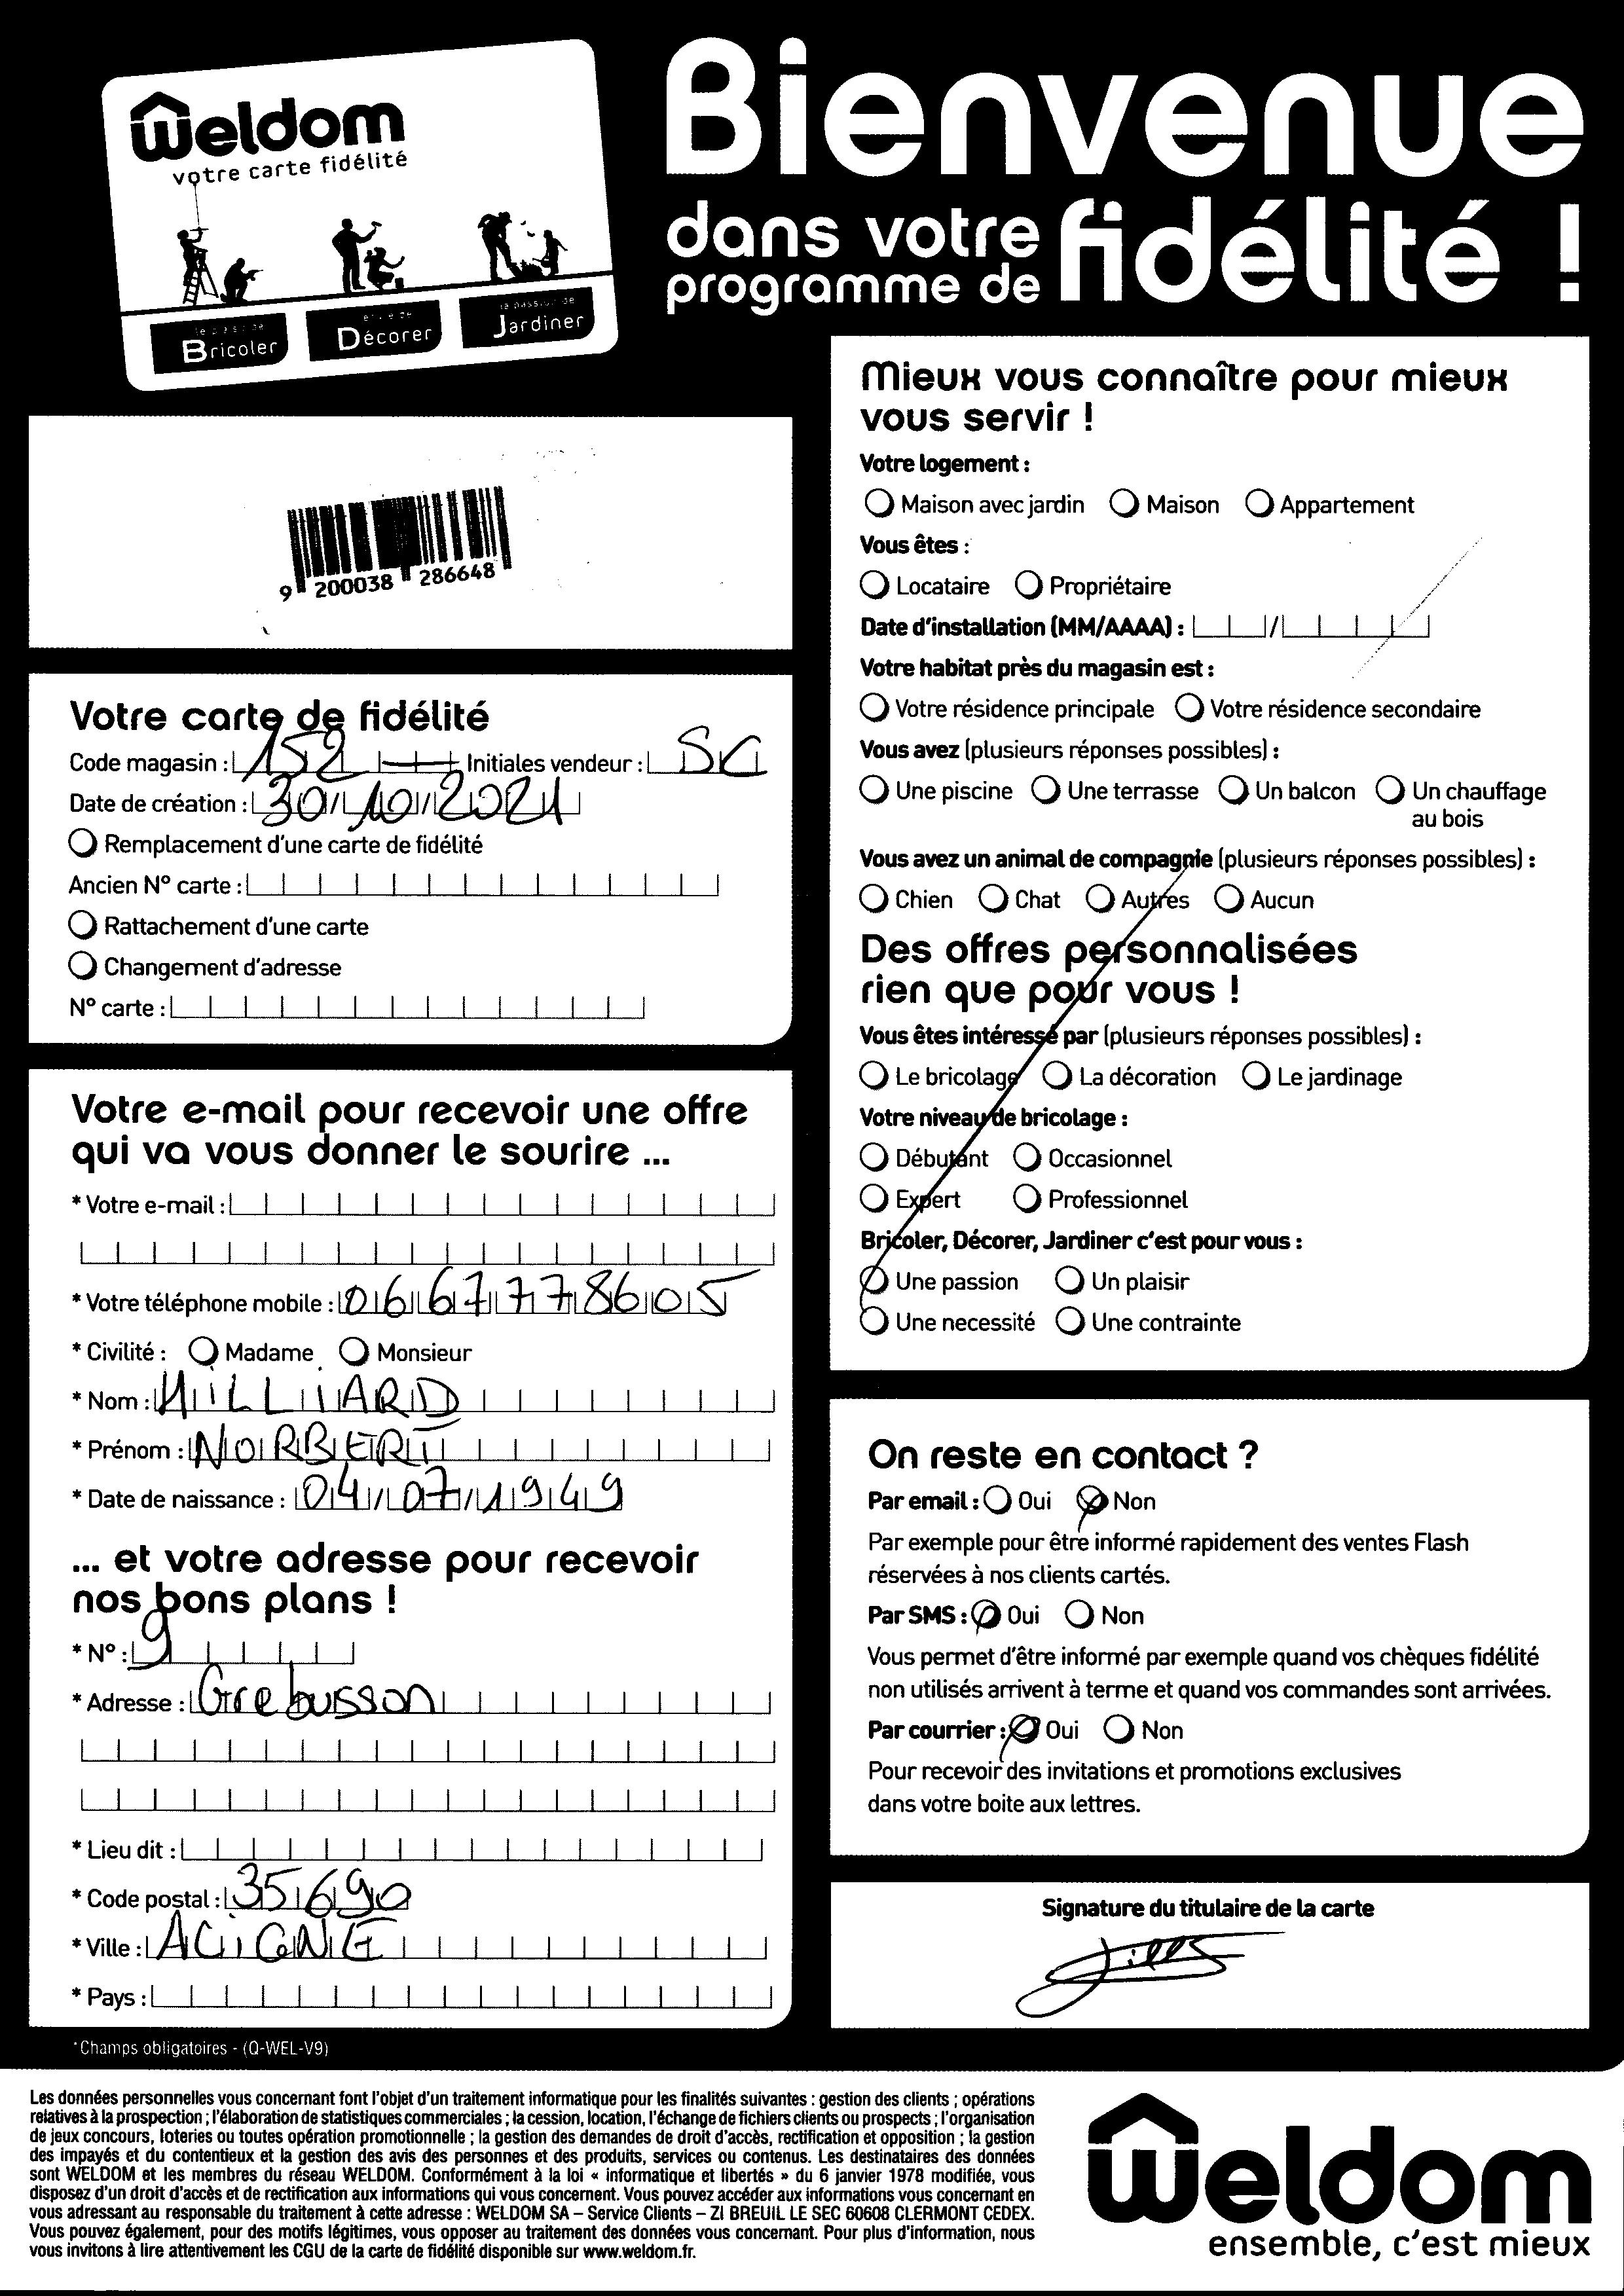 weldom
votre carte fidélité
Bricoler
Décorer
Jardiner
Bienvenue
dans votre
programme de fidélité !
9 200038 286648
Votre carte de fidélité
Code magasin : 152 Initiales vendeur : SC
Date de création : 30/10/2021
Remplacement d'une carte de fidélité
Ancien N° carte :
Rattachement d'une carte
Changement d'adresse
N° carte :
Votre e-mail pour recevoir une offre
qui va vous donner le sourire ...
* Votre e-mail :
* Votre téléphone mobile : 0667778605
* Civilité : Madame Monsieur
* Nom : MILLIARD
* Prénom : NORBERT
* Date de naissance : 04/07/1949
... et votre adresse pour recevoir
nos bons plans !
* N° : 9
* Adresse : Grebusson
* Lieu dit :
* Code postal : 35690
* Ville : ACIGNE
* Pays :
*Champs obligatoires - (Q-WEL-V9)
Mieux vous connaître pour mieux
vous servir !
Votre logement :
Maison avec jardin Maison Appartement
Vous êtes :
Locataire Propriétaire
Date d'installation (MM/AAAA) : /
Votre habitat près du magasin est :
Votre résidence principale Votre résidence secondaire
Vous avez (plusieurs réponses possibles) :
Une piscine Une terrasse Un balcon Un chauffage
au bois
Vous avez un animal de compagnie (plusieurs réponses possibles) :
Chien Chat Autres Aucun
Des offres personnalisées
rien que pour vous !
Vous êtes intéressé par (plusieurs réponses possibles) :
Le bricolage La décoration Le jardinage
Votre niveau de bricolage :
Débutant Occasionnel
Expert Professionnel
Bricoler, Décorer, Jardiner c'est pour vous :
Une passion Un plaisir
Une necessité Une contrainte
On reste en contact ?
Par email : Oui Non
Par exemple pour être informé rapidement des ventes Flash
réservées à nos clients cartés.
Par SMS : Oui Non
Vous permet d'être informé par exemple quand vos chèques fidélité
non utilisés arrivent à terme et quand vos commandes sont arrivées.
Par courrier : Oui Non
Pour recevoir des invitations et promotions exclusives
dans votre boite aux lettres.
Signature du titulaire de la carte
Les données personnelles vous concernant font l'objet d'un traitement informatique pour les finalités suivantes : gestion des clients ; opérations
relatives à la prospection ; l'élaboration de statistiques commerciales ; la cession, location, l'échange de fichiers clients ou prospects ; l'organisation
de jeux concours, loteries ou toutes opération promotionnelle ; la gestion des demandes de droit d'accès, rectification et opposition ; la gestion
des impayés et du contentieux et la gestion des avis des personnes et des produits, services ou contenus. Les destinataires des données
sont WELDOM et les membres du réseau WELDOM. Conformément à la loi « informatique et libertés » du 6 janvier 1978 modifiée, vous
disposez d'un droit d'accès et de rectification aux informations qui vous concernent. Vous pouvez accéder aux informations vous concernant en
vous adressant au responsable du traitement à cette adresse : WELDOM SA – Service Clients – ZI BREUIL LE SEC 60608 CLERMONT CEDEX.
Vous pouvez également, pour des motifs légitimes, vous opposer au traitement des données vous concernant. Pour plus d'information, nous
vous invitons à lire attentivement les CGU de la carte de fidélité disponible sur www.weldom.fr.
weldom
ensemble, c'est mieux